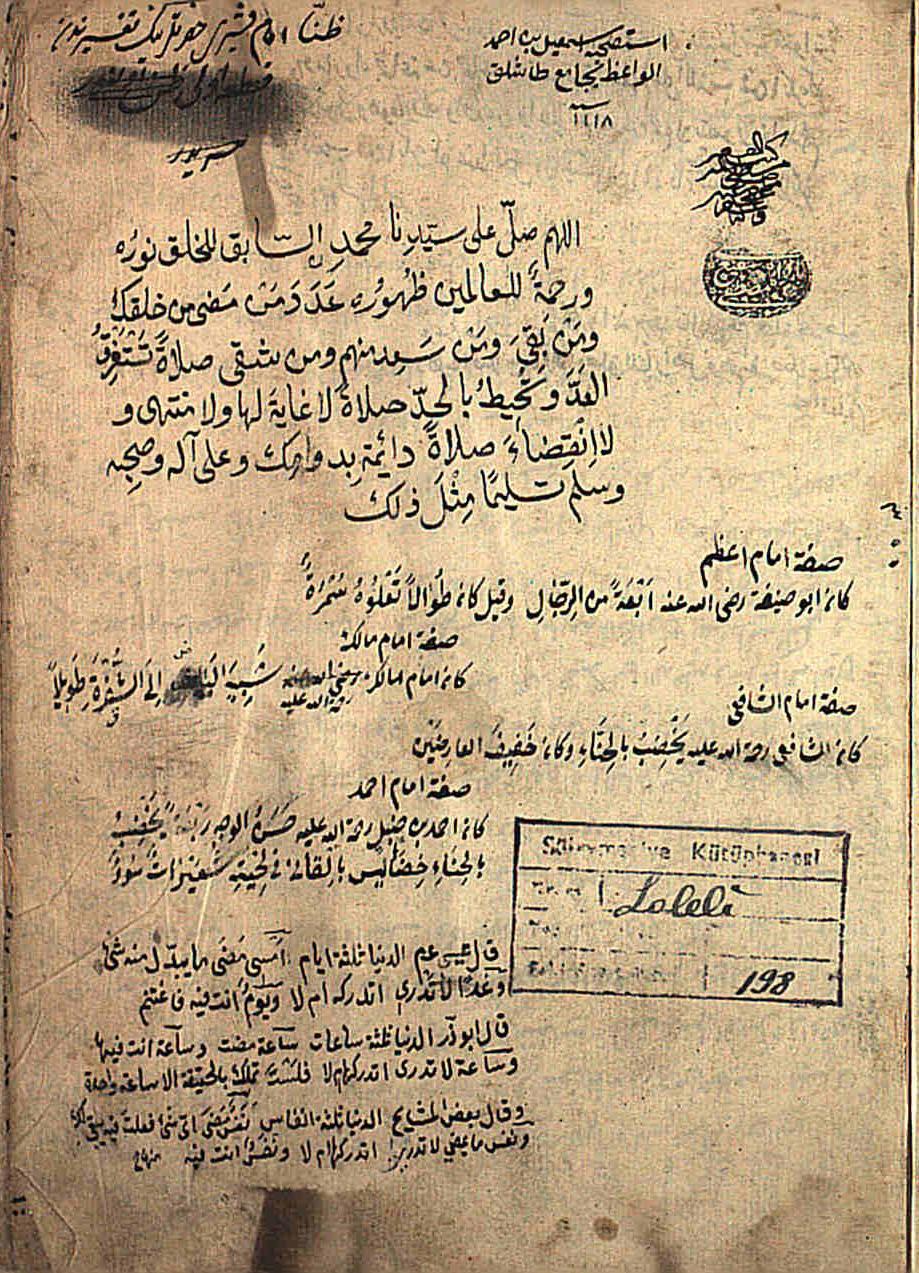 ظنّا امام قشيرى حضرتلرينك تفسيرندن
استصحبه اسمعيل بن احمد
الواعظ بجامع طاشلق
اللهم صلّ على سيّدنا محمدٍ السّابق للخلق نورُه
ورحمةً للعالمين ظُهورُه عَدَدَ مَنْ مَضى من خلقك
ومَنْ بَقِىَ ومَنْ سَعِد منهم ومن شقى صلاةً تَسْتَغْرِقُ
العَدَّ وتُحيطُ بالحدّ صلاةً لا غايةَ لها ولا منتهى و
لا انْقِضاءَ صلاةً دائمةً بدوامك وعلى آله وصحبه
وسلم تسليمًا مِثْلَ ذلك
صفة امام اعظم
كان ابو حنيفة رضى الله عنه رَبْعَةً من الرّجال وقيل كان طُوَالاً تَعْلُوهُ سُمْرَةٌ
صفة امام مالك
كان امام مالك رحمة الله عليه شديد البياض اِلَى الشُّقْرَةِ طَوِيلاً
صفة امام الشافعى
كان الشافعى رحمة الله عليه يَخْضِبُ بالحنّاءِ وكان خَفِيفَ العارِضَيْن
صفة امام احمد
كان احمد بن حنبل رحمة الله عليه حَسَنَ الوجه رَبْعَةً يَخْضِبُ
بالحِنَّاءِ خِضَاباً ليس بالقانى فى لِحْيَتِه شُعَيْرَاتٌ سُودٌ
Süleymaniye Kütüphanesi
Laleli
198
قال عيسى عم الدنيا ثلثة ايام امسى مَضَى ما بيدك منه شئ
وغدًا لا تَدْرى اتدركه ام لا ويَومٌ انت فيه فاغتنم
قال ابو ذر الدنيا ثلثة ساعات ساعة مضت وساعة انت فيها
وساعة لا تدرى اتدركها ام لا فلَسْتَ تملك بالحقيقة الا ساعة واحدة
وقال بعض المشايخ الدنيا ثلثة انفاس نَفَسٌ مَضَى اى شئ فعلت فيه
ونفس ما يمضى لا تدرى اتدركه ام لا ونَفَسٌ انت فيه منهاج